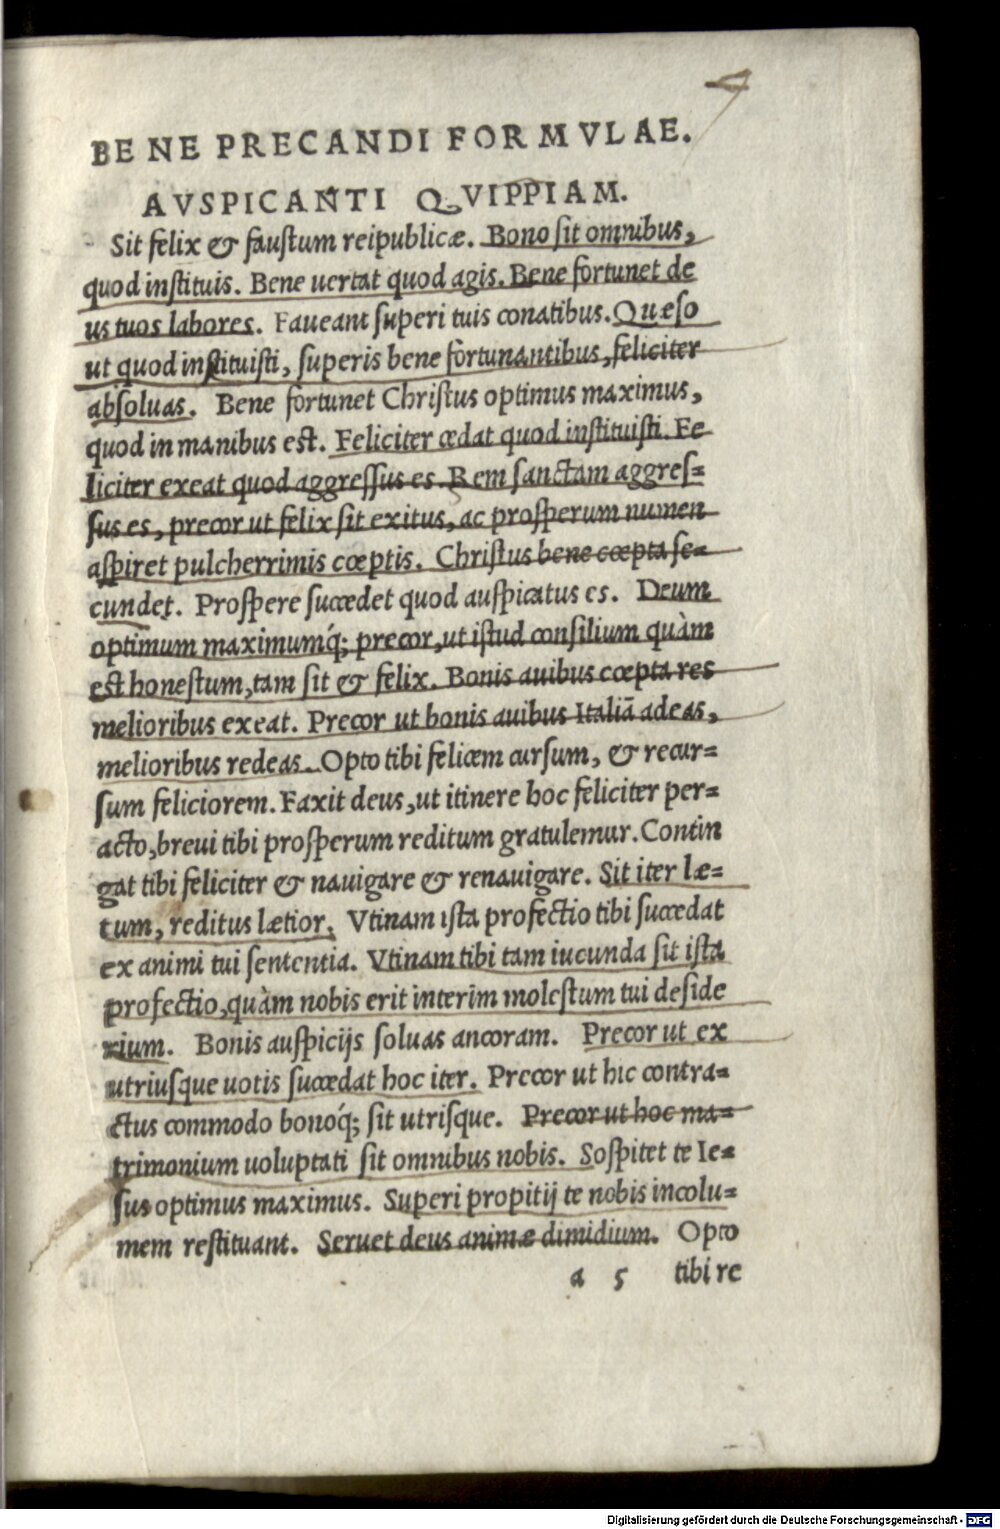 BENE PRECANDI FORMVLAE.
AVSPICANTI QVIPPIAM.
Sit felix & faustum reipublicæ. Bono sit omnibus,
quod instituis. Bene uertat quod agis. Bene fortunet de
us tuos labores. Faueant superi tuis conatibus. Quæso
ut quod instituisti, superis bene fortunantibus, feliciter
absoluas. Bene fortunet Christus optimus maximus,
quod in manibus est. Feliciter cedat quod instituisti. Fe
liciter exeat quod aggressus es. Rem sanctam aggres=
sus es, precor ut felix sit exitus, ac prosperum numen
aspiret pulcherrimis cœptis. Christus bene cœpta se=
cundet. Prospere succedet quod auspicatus es. Deum
optimum maximumq́; precor, ut istud consilium quàm
est honestum, tam sit & felix. Bonis auibus cœpta res
melioribus exeat. Precor ut bonis auibus Italiã adeas,
melioribus redeas. Opto tibi felicem cursum, & recur=
sum feliciorem. Faxit deus, ut itinere hoc feliciter per=
acto, breui tibi prosperum reditum gratulemur. Contin
gat tibi feliciter & nauigare & renauigare. Sit iter læ=
tum, reditus lætior. Vtinam ista profectio tibi succedat
ex animi tui sententia. Vtinam tibi tam iucunda sit ista
profectio, quàm nobis erit interim molestum tui deside
rium. Bonis auspicijs soluas ancoram. Precor ut ex
utriusque uotis succedat hoc iter. Precor ut hic contra=
ctus commodo bonoq́; sit utrisque. Precor ut hoc ma=
trimonium uoluptati sit omnibus nobis. Sospitet te Ie=
sus optimus maximus. Superi propitij te nobis incolu=
mem restituant. Seruet deus animæ dimidium. Opto
a 5 tibi re
Digitalisierung gefördert durch die Deutsche Forschungsgemeinschaft - DFG